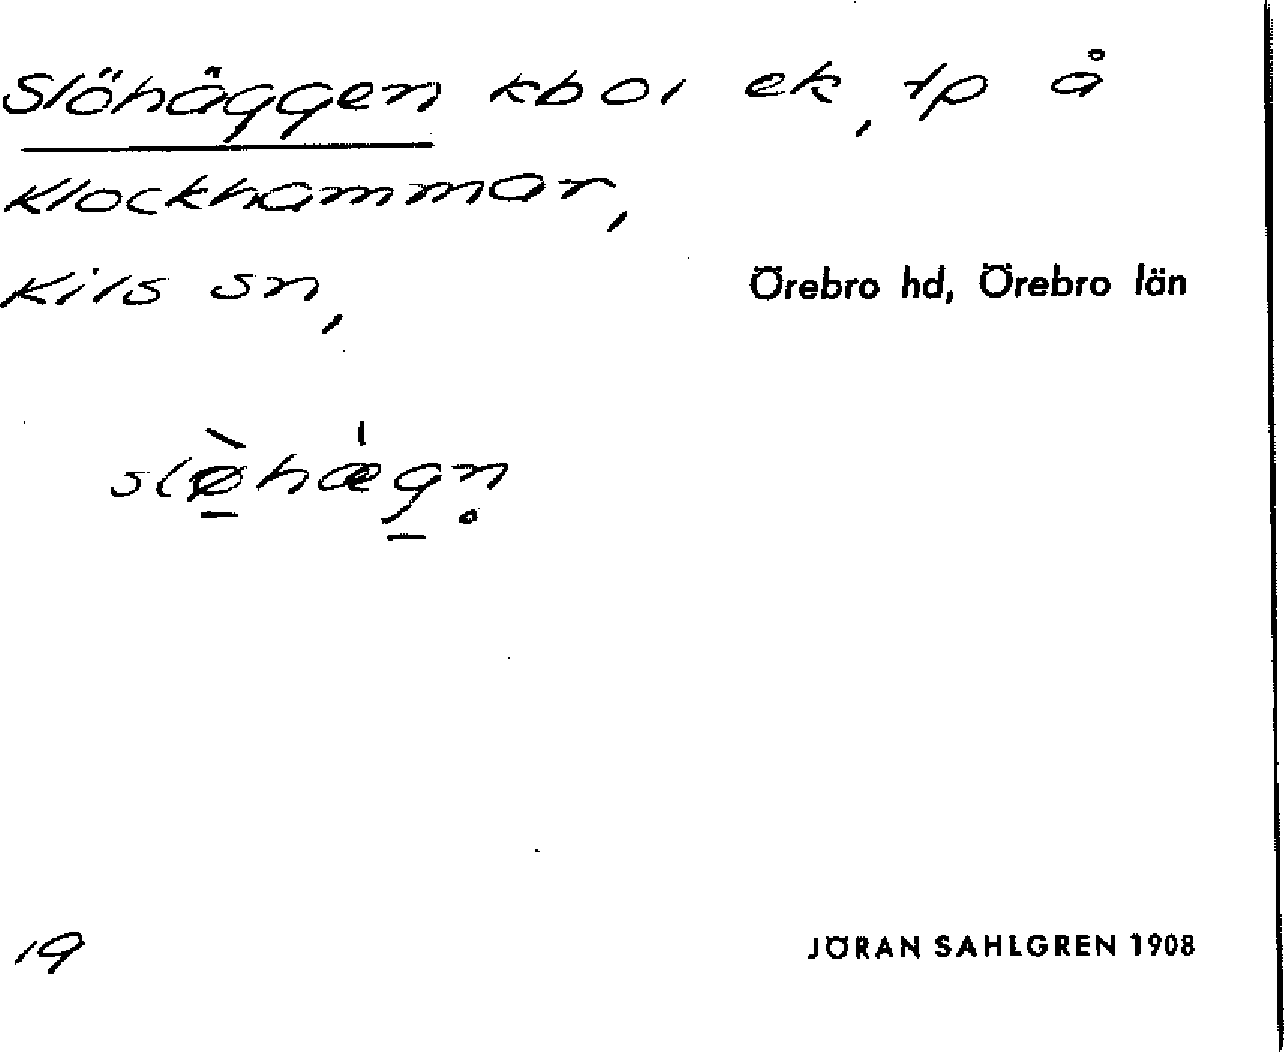 Slöhäggen kbol ek, tp å
Klockhammar,
Kils sn, Örebro hd, Örebro län
slø̱̀hæ̍g̱n̥
19 JÖRAN SAHLGREN 1908